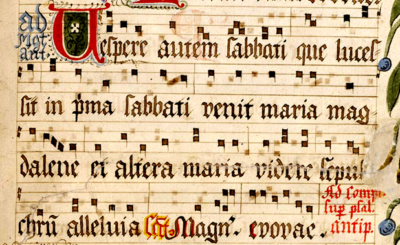 ad
mgt
ant.
Uespere autem sabbati que luces
sit in pma sabbati venit maria mag
dalene et altera maria videre sepul
chru alleluia Magn. evovae.
Ad comp
sup psal.
antip.